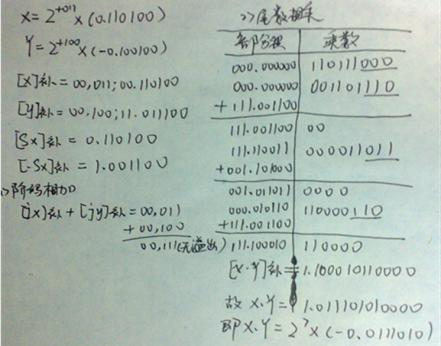 X=2^+011×(0.110100)
Y=2^+100×(-0.100100)
[X]补=00,011;00.110100
[y]补=00.100;11.011100
[Sx]补=0.110100
[-Sx]补=1.001100
1>阶码相加
[jx]补+[jy]补=00,011
+00,100
00,111(无溢出)
2>尾数相乘
部分积 乘数
000.000000 110111000
000.000000 001101110
+111.001100
111.001100 00
111.110011 000011011
+001.101000
001.011011 0000
000.010110 110000110
+111.001100
111.100010 110000
[X·Y]补=1.100010110000
故X.Y= 1.011101010000
即X.Y=2^7×(-0.0111010)